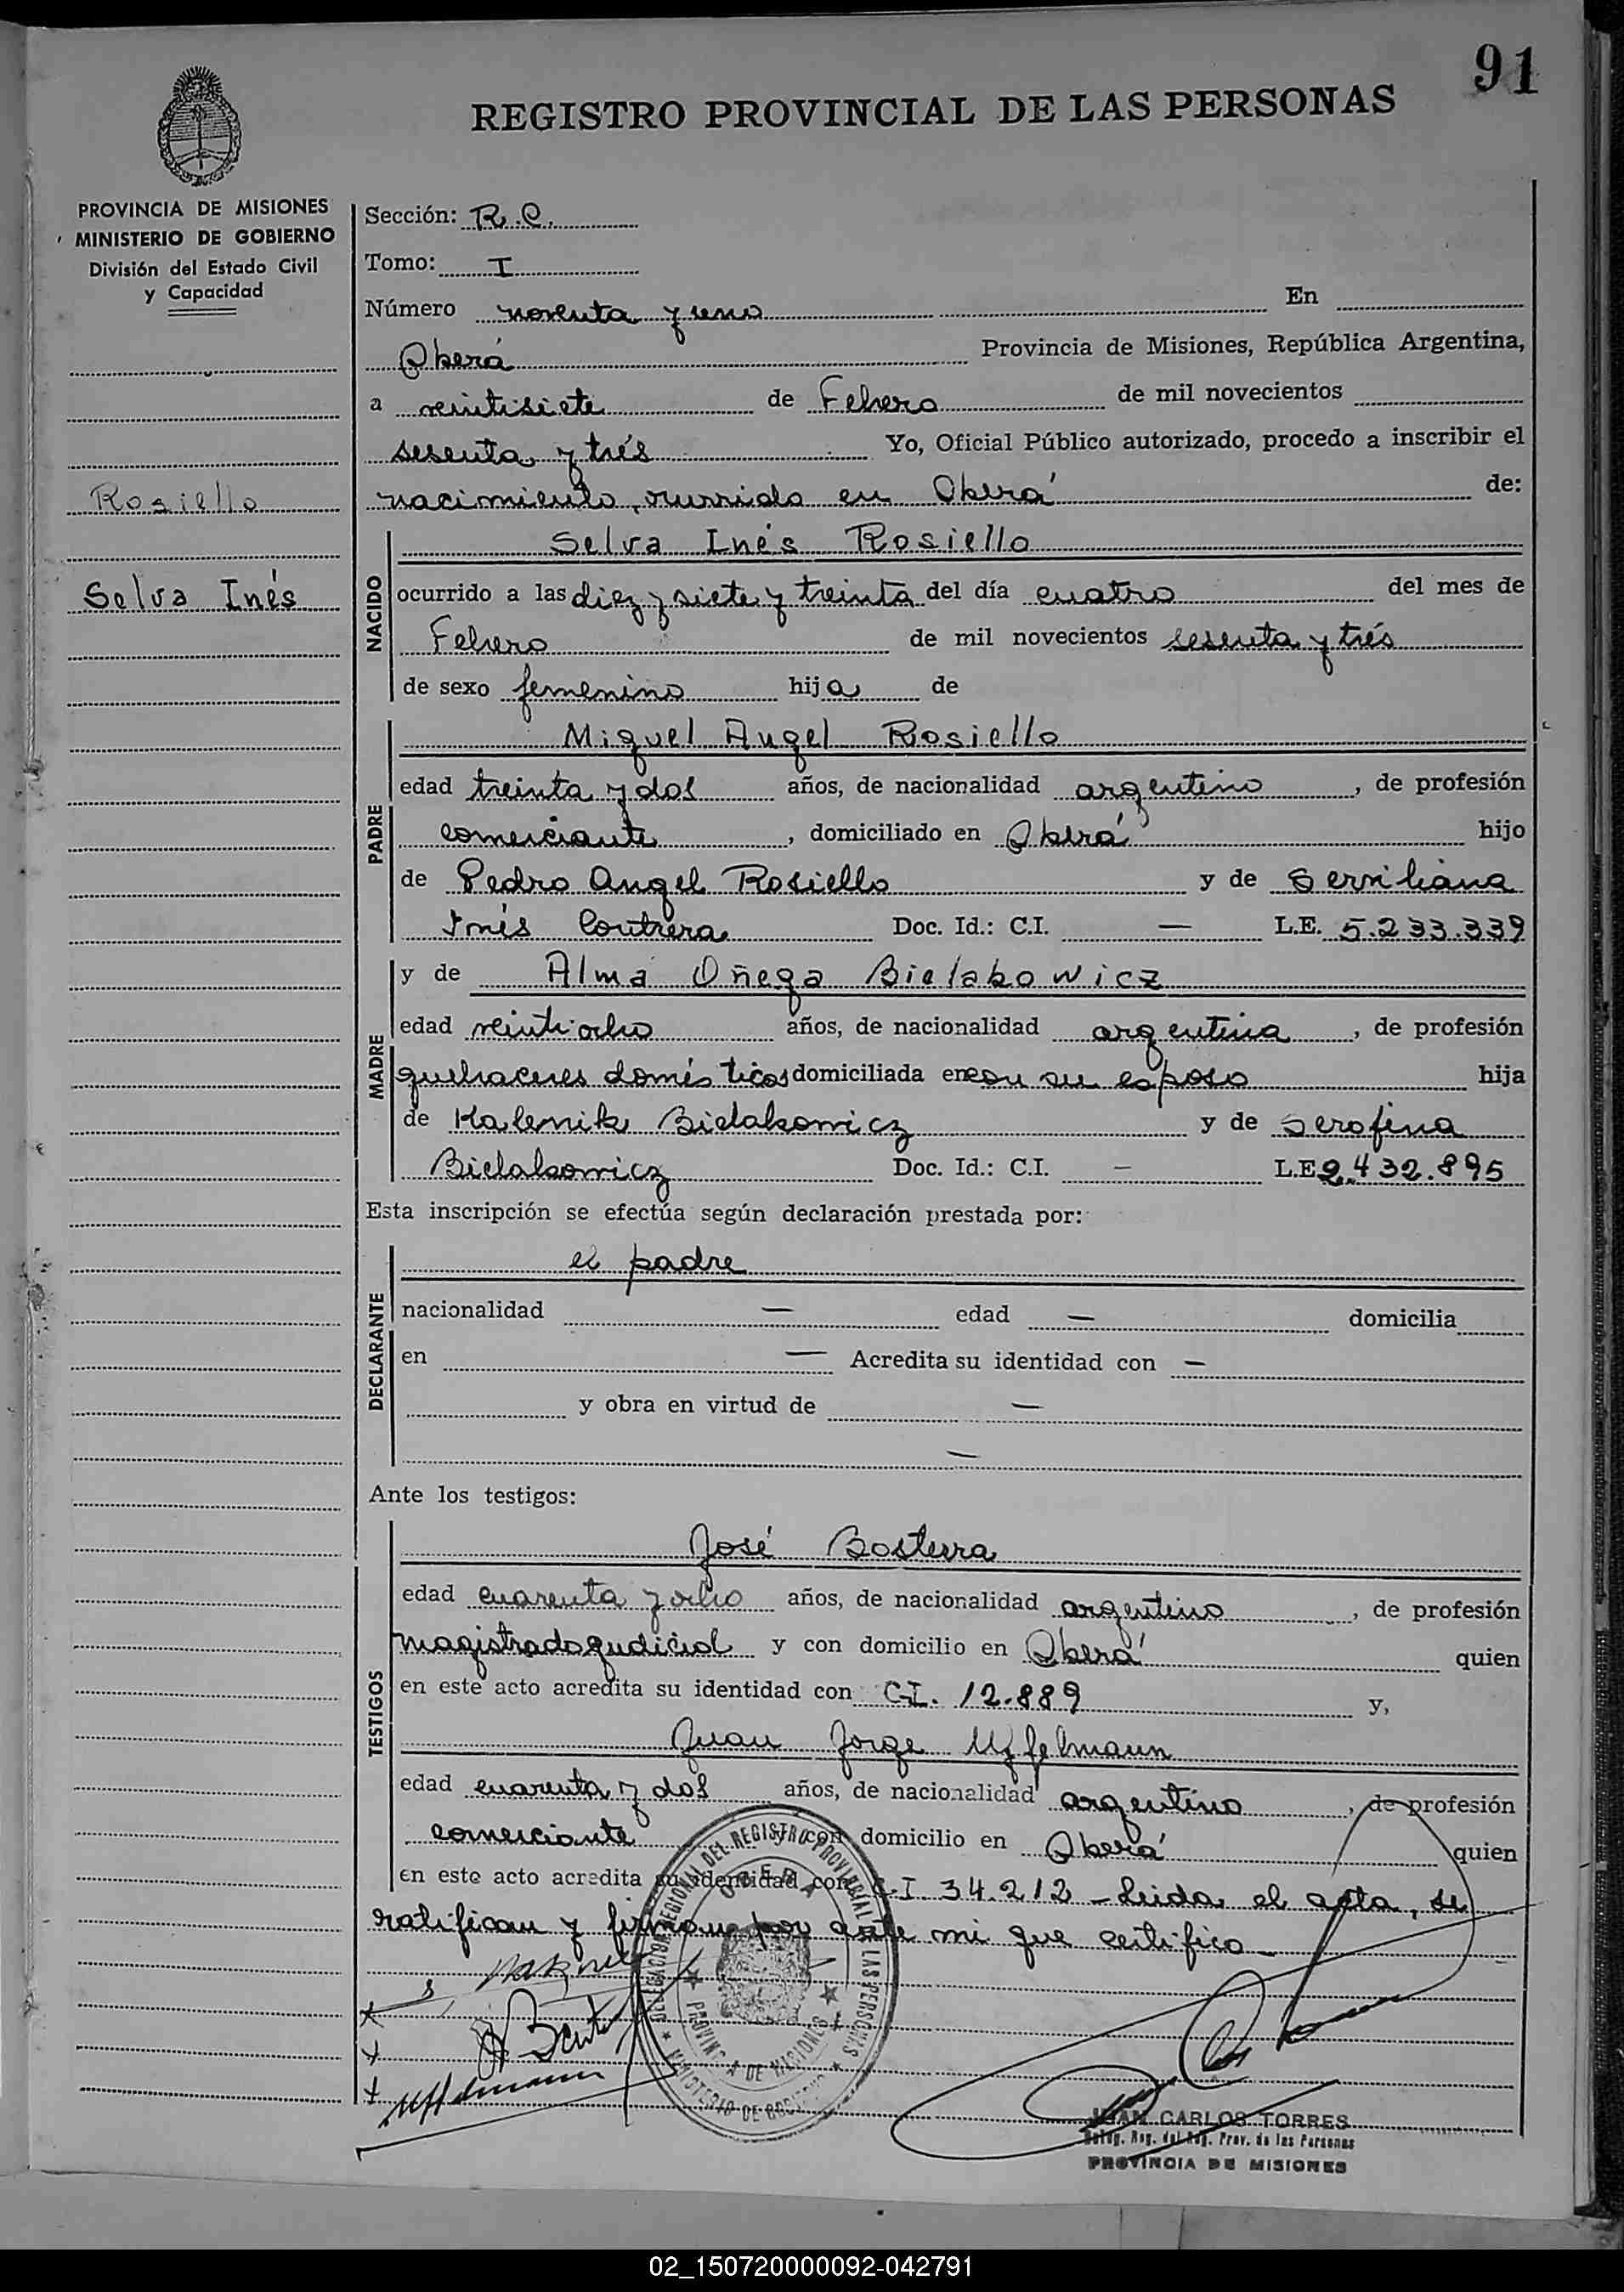 91
REGISTRO PROVINCIAL DE LAS PERSONAS
PROVINCIA DE MISIONES
MINISTERIO DE GOBIERNO
División del Estado Civil
y Capacidad
Rosiello
Selva Inés
Sección: R.C.
Tomo: I
Número noventa y uno En
Oberá Provincia de Misiones, República Argentina,
a veintisiete de Febrero de mil novecientos
sesenta y trés Yo, Oficial Público autorizado, procedo a inscribir el
nacimiento, ocurrido en Oberá de:
NACIDO
Selva Inés Rosiello
ocurrido a las diez y siete y treinta del día cuatro del mes de
Febrero de mil novecientos sesenta y trés
de sexo femenino hija de
PADRE
Miguel Angel Rosiello
edad treinta y dos años, de nacionalidad argentino, de profesión
comerciante, domiciliado en Oberá hijo
de Pedro Angel Rosiello y de Serviliana
Inés Contrera Doc. Id.: C.I. — L.E. 5.233.339
MADRE
y de Alma Oñega Bielakowicz
edad veintiocho años, de nacionalidad argentina, de profesión
quehaceres domésticos domiciliada en con su esposo hija
de Kalenik Bielakowicz y de Serofina
Bielakowicz Doc. Id.: C.I. — L.E. 2.432.895
Esta inscripción se efectúa según declaración prestada por:
DECLARANTE
el padre
nacionalidad — edad — domicilia
en — Acredita su identidad con —
y obra en virtud de —
—
Ante los testigos:
TESTIGOS
José
edad cuarenta y ocho años, de nacionalidad argentino, de profesión
magistrado judicial y con domicilio en Oberá quien
en este acto acredita su identidad con C.I. 12.889 y,
Juan Jorge
edad cuarenta y dos años, de nacionalidad argentino, de profesión
comerciante y con domicilio en Oberá quien
en este acto acredita su identidad con C.I 34.212 - Leida el acta, se
ratifican y firman por ante mi que certifico -
DELEGACION REGIONAL DEL REGISTRO PROVINCIAL DE LAS PERSONAS
OBERA
PROVINCIA DE MISIONES
MINISTERIO DE GOBIERNO
JUAN CARLOS TORRES
Deleg. Reg. del Reg. Prov. de las Personas
PROVINCIA DE MISIONES
02_150720000092-042791